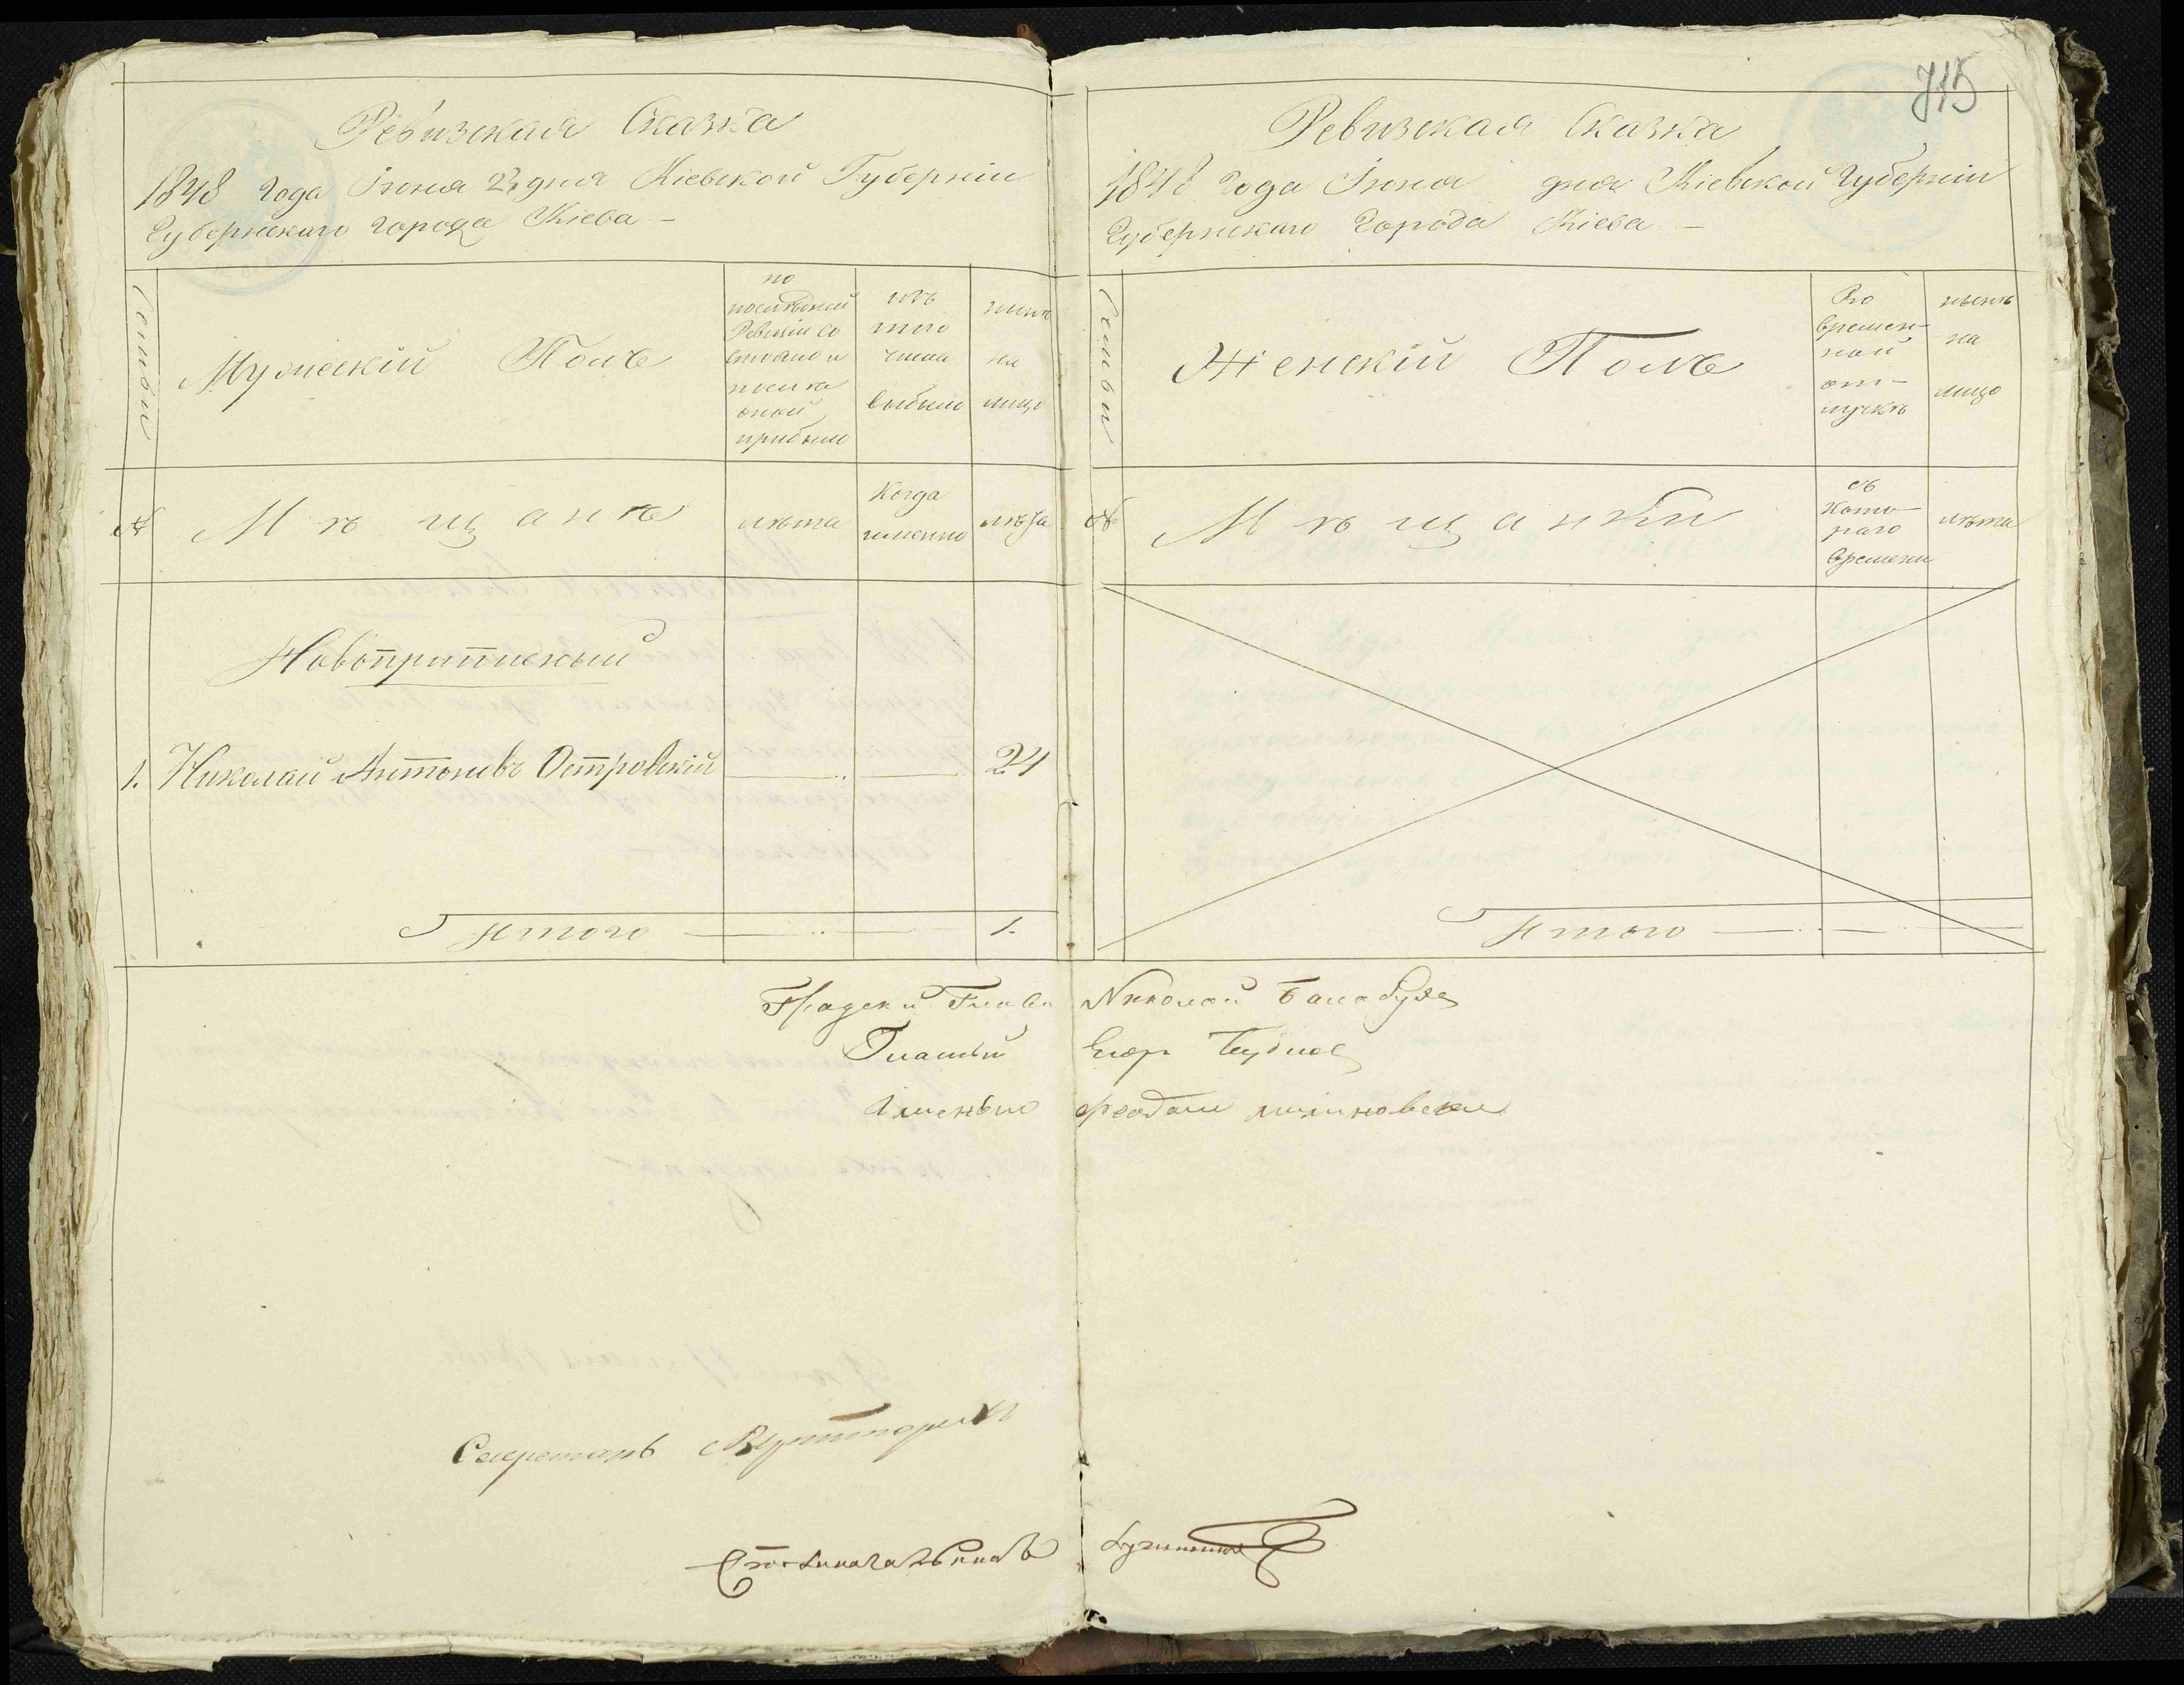 715
Ревизская Сказка
1848 года Іюня 23 дня Кіевской Губерніи
Губернскаго города Кіева –
Семьи
Мужескій Полъ
по
последней
Ревизіи со
стояло и
после
оной
прибыло
изъ
того
числа
выбыло
нынѣ
на
лицо
№
Мѣщанѣ
лѣта
Когда
именно
лѣта
Новоприписный
1. Николай Антоновъ Островскій 24
Итого 1.
Ревизская Сказка
1848 года Іюня дня Кіевской Губерніи
Губернскаго Города Кіева –
Семьи
Женскій Полъ
Во
времен-
ной
от-
лучкѣ
нынѣ
на
лицо
№
Мѣщанки
съ
Кото-
раго
времени
лѣта
Итого
Градски Глава Николай Балабуха
Гласный Егор
Феодосій
Секретарь
Столоначальникъ